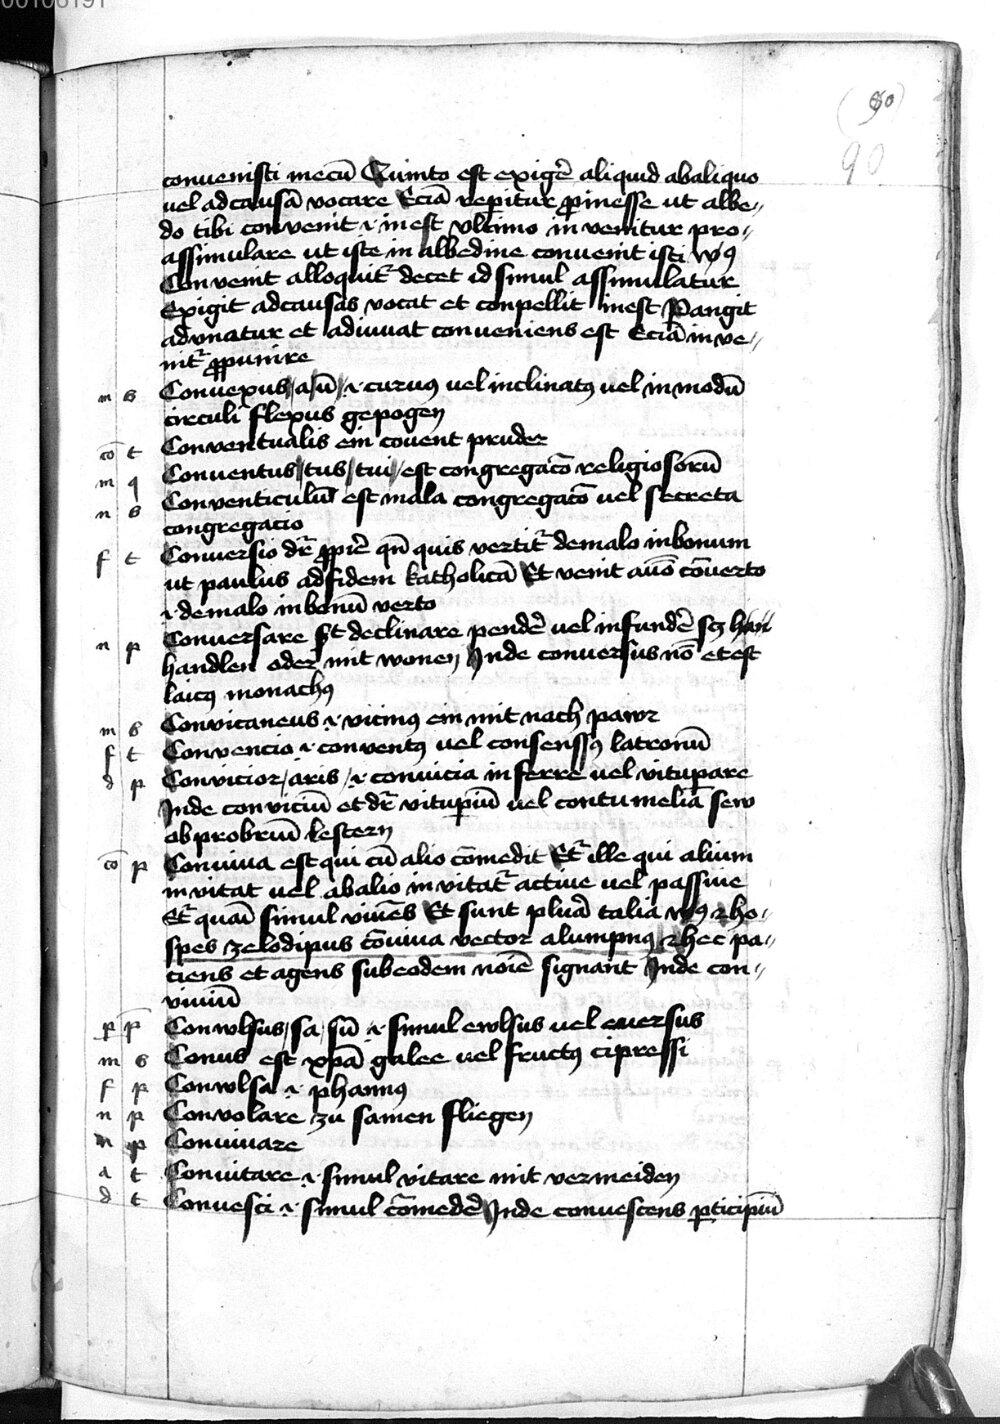 00106191
(90)
90
convenisti mecū Quinto est exigē aliquid abaliquo
vel ad causā vocare Eciā repitur ꝓ inesse ut albe„
do tibi convenit ⁊ inest Ultimo invenitur pro„
assimulare ut iste in albedine convenit isti vꝰ
Convenit alloquit̄ decet id simul assimulatur
Exigit ad causas vocat et conpellit inest Pangit
adunatur et adiuvat conveniens est Eciā inve„
nit̄ ꝓ punire
m s Convexus / a / ū / .i. curvꝰ vel inclinatꝰ vel in modū
circuli flexus gepogen
cō t Conventualis ein covent pruder
m q Conventus / tus / tui / est congregacō religiosorū
n s Conventiculū est mala congregacō vel secreta
congregacio
f t Conversio dr̄ ꝓprie qn̄ quis vertit̄ de malo in bonum
ut paulus ad fidem katholicā Et venit a vō cōverto
.i. de malo in bonū verto
n p Conversare st declinare pendē vel infundē sꝫ han
handlen oder mit wonen Inde conversus nō et est
laicꝰ monachꝰ
m s Convicaneus .i. vicinꝰ ein mit nach pawr
f t Convencio .i. conventꝰ vel consenssꝰ latronū
d p Convicior / aris / .i. convicia inferre vel vitupare
Inde conviciū et dr̄ vitupiū vel contumelia sew
obprobriū lestern
cō p Conviva est qui cū alio cōmedit Et ille qui alium
invitat vel ab alio invitat̄ active vel passive
Et quasi simul vivēs Et sunt plura talia vꝰ ho„
spes zelodipus cōviva vector alumpnꝰ hec pa„
ciens et agens sub eodem noīe signant Inde con„
viviū
p p Conwlsus / sa / sū .i. simul ewlsus vel eversus
m s Conus est xpā galee vel fructꝰ cipressi
f p Conwlsa .i. phamꝰ
n p Convolare zu samen fliegen
n p Convivare
a t Convitare .i. simul vitare mit vermeiden
d t Convesci .i. simul cōmedē Inde convescens pticipiū